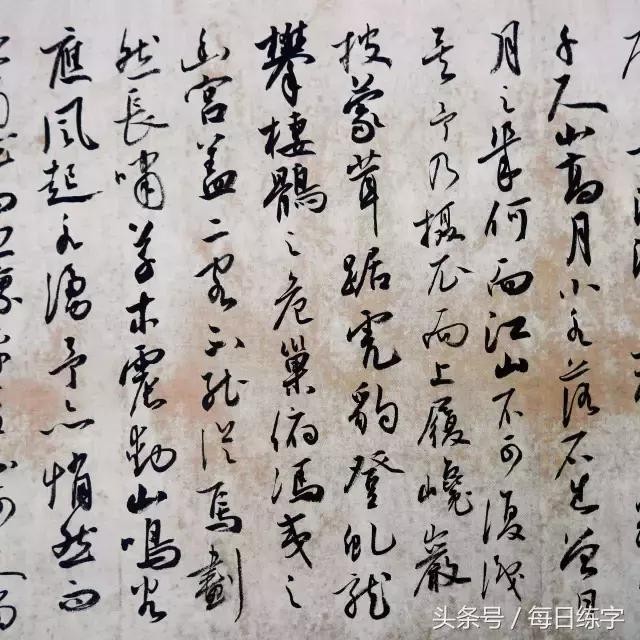 千尺山高月小水落石出曾日
月之幾何而江山不可復識
矣予乃攝衣而上履巉巖
披蒙茸踞虎豹登虬龍
攀棲鶻之危巢俯馮夷之
幽宮蓋二客不能從焉劃
然長嘯草木震動山鳴谷
應風起水湧予亦悄然而
头条号 / 每日练字